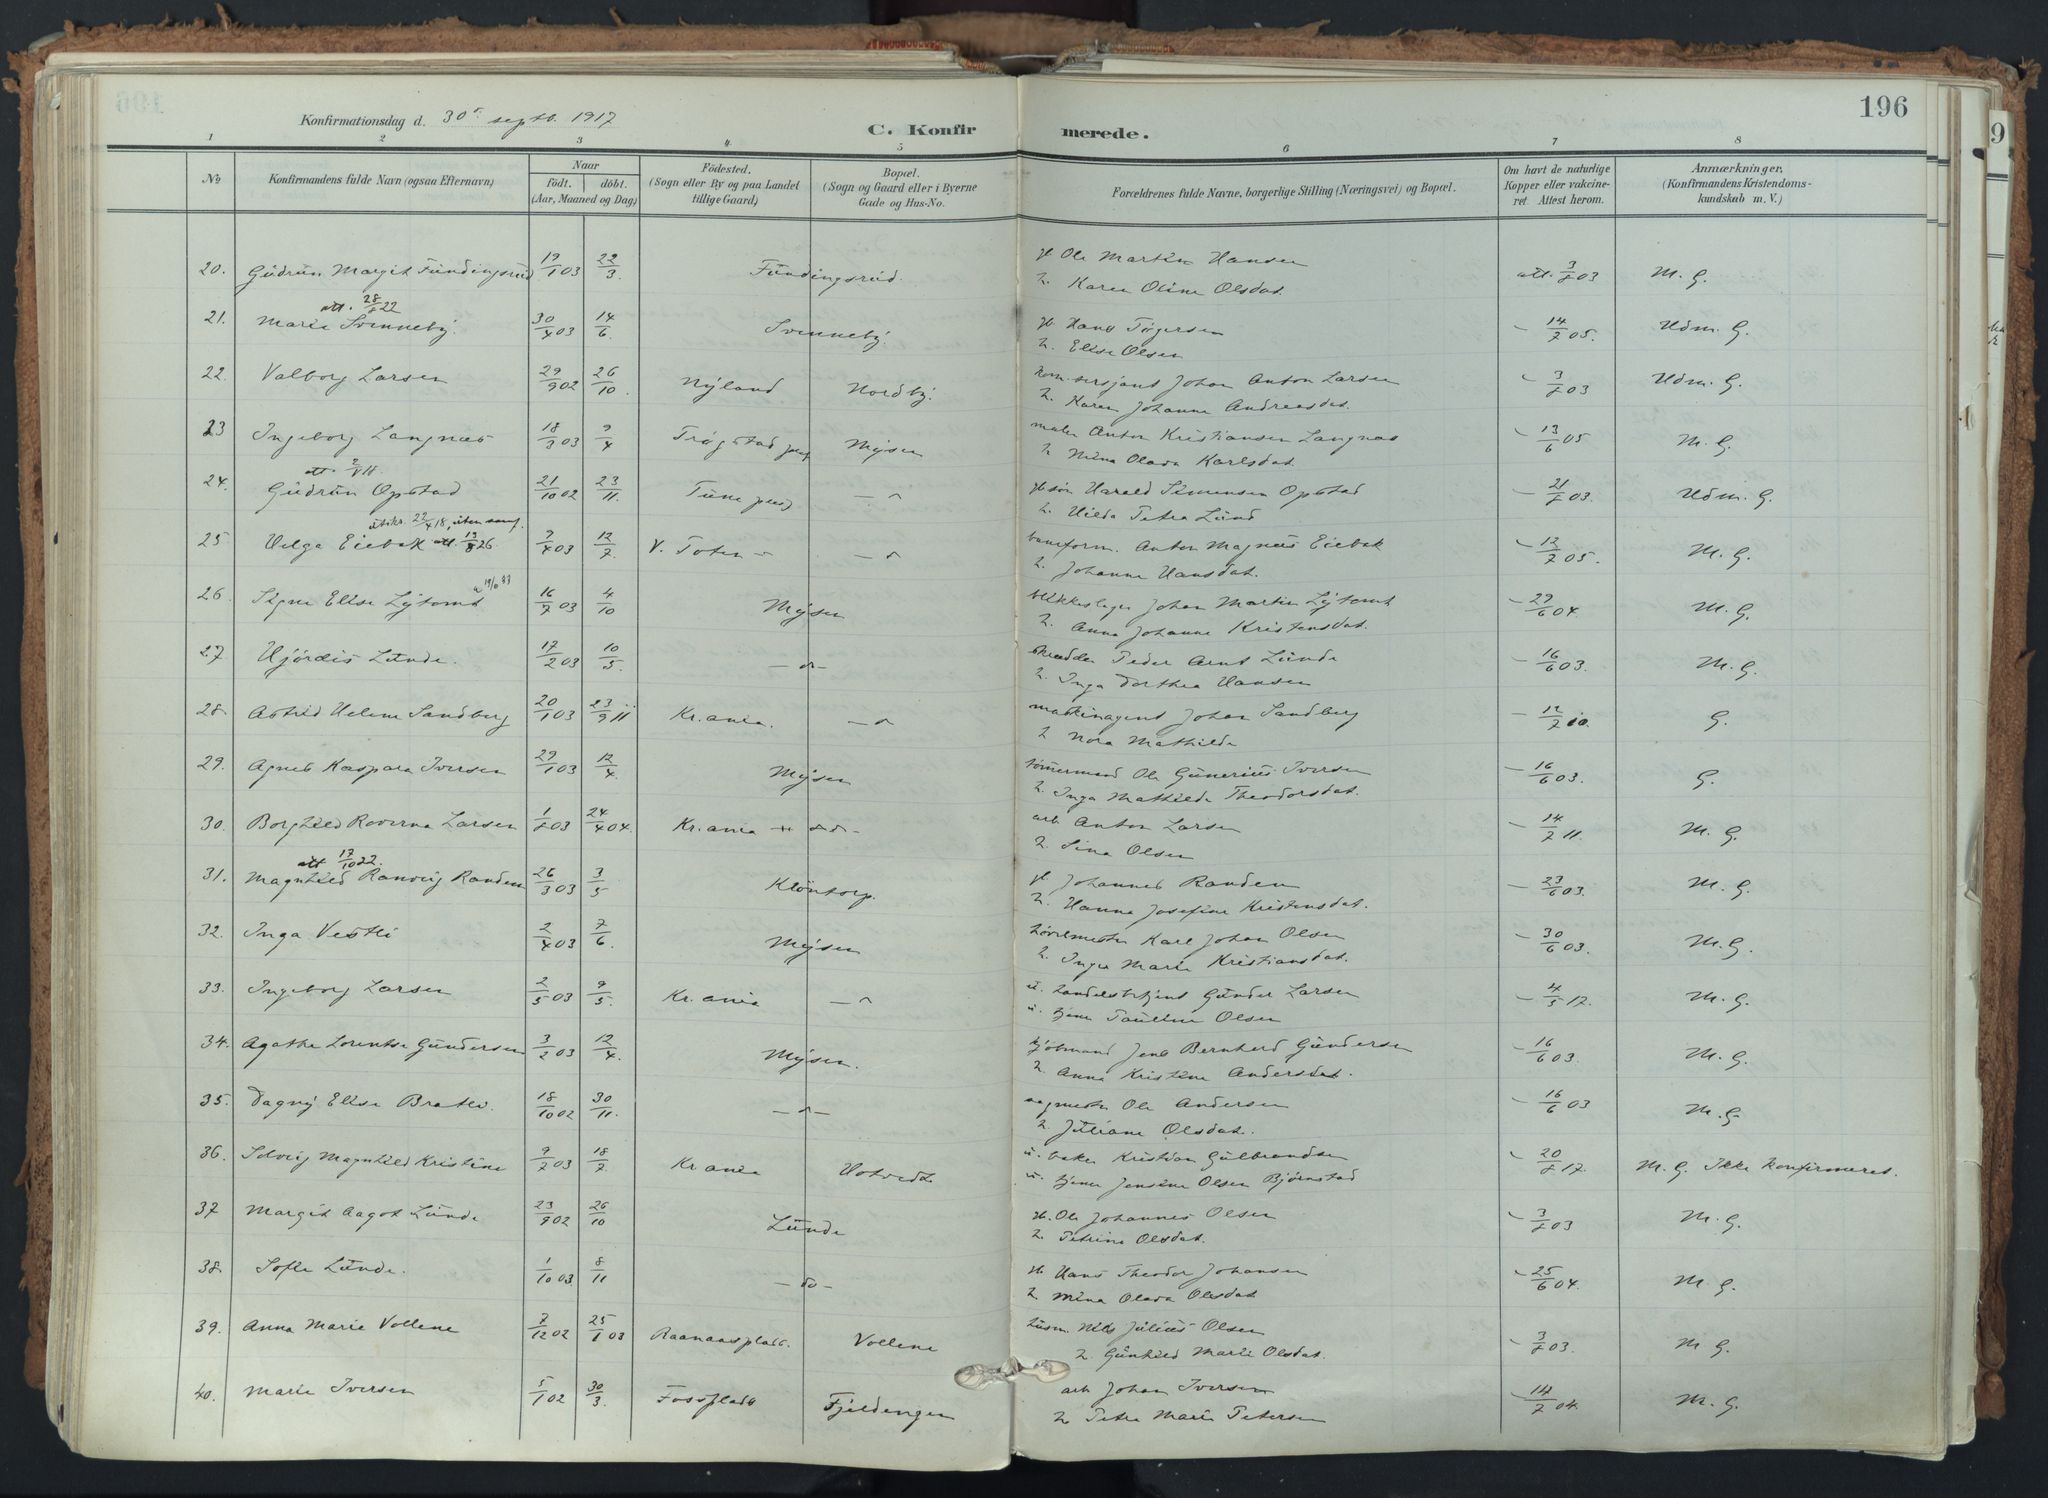 196
Konfirmationsdag d. 30te septb. 1917
C. Konfirmerede.
1 2 3 4 5 6 7 8
No
Konfirmandens fulde Navn (ogsaa Efternavn)
Naar
født. døbt.
(Aar, Maaned og Dag)
Fødested.
(Sogn eller By og paa Landet
tillige Gaard)
Bopæl.
(Sogn og Gaard eller i Byerne
Gade og Hus-No.
Forældrenes fulde Navne, borgerlige Stilling (Næringsvei) og Bopæl.
Om havt de naturlige
Kopper eller vakcine-
ret Attest herom.
Anmærkninger,
(Konfirmandens Kristendoms-
kundskab m. V.)
20. Gudrun Margit Fundingsrud 19/1 03 22/3 Fundingsrud. gb Ole Martin Hansen att. 3/8 03 M. G.
h. Karen Oline Olsdat.
att. 28/8 22
21. Marie Svenneby. 30/4 03 14/6 Svenneby. gb. Hans Torgersen – 14/7 05. Udm. G.
h. Elise Olsen
22. Valborg Larsen 29/9 02 26/10 Nyland Nordby. kom.sersjant Johan Anton Larsen – 3/8 03 Udm. G.
h. Karen Johanne Andreasdat.
23 Ingeborg Langnæs 18/3 03 9/4 Trøgstad Mysen maler Anton Kristiansen Langnæs – 13/6 05 M. G.
h Mina Olava Karlsdat.
24. Gudrun Opstad 21/10 02 23/11. Tune – " gbsøn Harald Simensen Opstad – 21/8 03. Udm. G.
h. Hilda Petra Lund
utskr. 22/4 18, uten
25. Helga Eiebak att. 13/8 26 7/4 03 12/7 V. Toten – – " baneform. Anton Magnus Eiebak – 12/7 05. M. G.
h. Johanne Hansdat.
26. Signe Elise Lytomt 16/7 03 4/10 Mysen blikkeslager Johan Martin Lytomt – 29/6 04 M. G.
h. Anna Johanne Kristensdat.
27. Hjördis Lunde. 17/2 03 10/5. – " – skrædder Peder Arnt Lunde – 16/6 03. M. G.
h. Inga Dorthea Hansen
28. Astrid Helene Sandberg 20/1 03 23/9 11 Kr.ania. – " maskinagent Johan Sandberg – 12/7 10. G.
h Nora Mathilde
29. Agnes Kaspara Iversen 29/1 03 12/4 Mysen tømmermand Ole Gunerius Iversen – 16/6 03. G.
h. Inga Mathilde Theodorsdat.
30. Borghild Roverna Larsen 1/8 03 24/4 04. Kr.ania arb. Anton Larsen – 14/7 11. M. G.
h. Sina Olsen
att 17/10 22.
31. Magnhild Ranveig Randem 26/3 03 3/5 Klöntorp. gb Johannes Randem – 23/6 03. M. G.
h. Hanna Josefine Kristensdat.
32. Inga Vestli 2/4 03 7/6 Mysen høvelmester Karl Johan Olsen – 30/6 03. M. G.
h. Inga Marie Kristiansdat.
33. Ingeborg Larsen 2/5 03 9/5. Kr.ania – " u. handelsbetjent Gunder Larsen – 4/5 17. M. G.
u. tjener Pauline Olsen
34. Agathe Lorentse Gundersen 3/2 03 12/4 Mysen. kjøbmand Jens Bernherd Gundersen – 16/6 03. M. G.
h. Anna Kristine Andersdat.
35. Dagny Elise Bratli. 18/10 02 30/11. – " – sagmester Ole Andersen – 16/6 03 M. G
h. Juliane Olsdat.
36. Solveig Magnhild Kristine 9/7 03 18/7. Kr.ania Hotvedt u. baker Kristian Gulbrandsen – 20/8 17. M. G. Ikke konfirmeret.
u. tjener Jensine Olsen Bjørnstad
37 Margit Aagot Lunde 23/9 02 26/10 Lunde gb. Ole Johannes Olsen – 3/8 03 M. G.
h. Petrine Olsdat.
38. Sofie Lunde. 1/10 03 8/11 – do – gb. Hans Theodor Johansen – 25/6 04. M. G.
h. Mina Olava Olsdat.
39. Anna Marie Vollene 7/12 02 25/1 03 Raanaasplads. Vollene husm. Nils Julius Olsen – 3/8 03. M. G.
h. Gunhild Marie Olsdat.
40. Marie Iversen 5/1 02 30/3. Fossplads Fjeldengen arb Johan Iversen – 14/7 04. M. G.
h Petra Marie Petersen